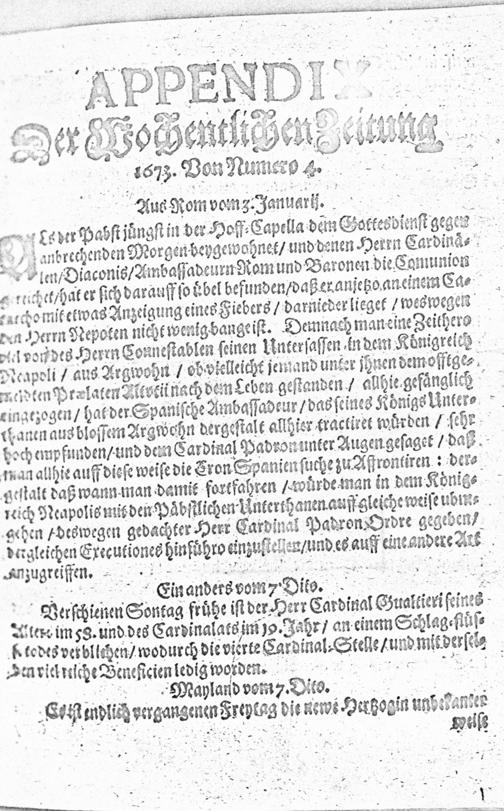 APPENDIX
Der Wochentlichen Zeitung
1673. Von Numero 4.
Aus Rom vom 3. Januarij.
Als der Pabst jüngst in der Hoff-Capella dem Gottesdienst gegen
anbrechenden Morgen beygewohnet / und denen Herrn Cardinä-
len / Diaconis / Ambassadeurn Rom und Baronen die Comunion
gereichet / hat er sich darauff so übel befunden / daß er anjetzo an einem Ca-
tarcho mit etwas Anzeigung eines Fiebers / darnieder lieget / weswegen
den Herrn Nepoten nicht wenig bange ist. Demnach man eine Zeithero
viel von des Herrn Connestablen seinen Untersassen in dem Königreich
Neapoli / aus Argwohn / ob vielleicht jemand unter ihnen dem offtge-
meldten Prælaten Altovii nach dem Leben gestanden / allhie gefänglich
eingezogen / hat der Spanische Ambassadeur / das seines Königs Unter-
thanen aus blossem Argwohn dergestalt allhier tractiret würden / sehr
hoch empfunden / und dem Cardinal Padron unter Augen gesaget / daß
man allhie auff diese weise die Cron Spanien suche zu Affrontiren : der-
gestalt daß wann man damit fortfahren / würde man in dem König-
reich Neapolis mit den Päbstlichen Unterthanen auff gleiche weise ubm-
gehen / deswegen gedachter Herr Cardinal Padron Ordre gegeben /
dergleichen Executiones hinführo einzustellen / und es auff eine andere Art
anzugreiffen.
Ein anders vom 7 Dito.
Verschienen Sontag frühe ist der Herr Cardinal Gualtieri seines
Alters im 58. und des Cardinalats im 19. Jahr / an einem Schlag-flüs-
se todes verblichen / wodurch die vierte Cardinal-Stelle / und mit dersel-
ben viel reiche Beneficien ledig worden.
Mayland vom 7. Dito.
Es ist endlich vergangenen Freytag die newe Hertzogin unbekanter
weise